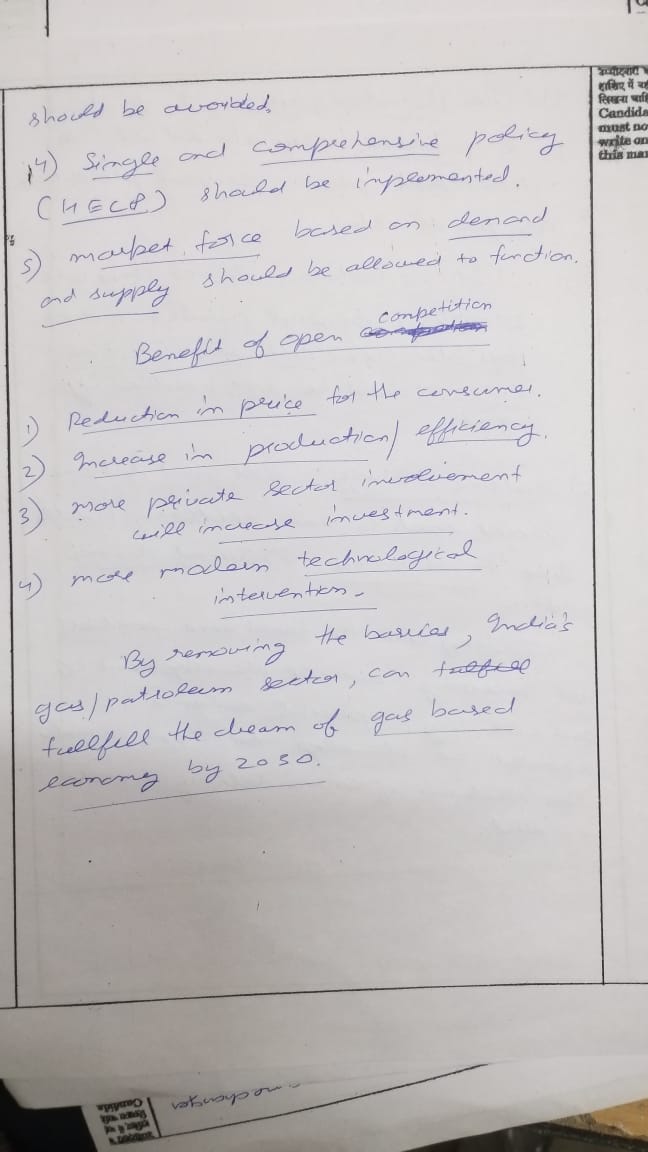 should be avoided.
4) Single and comprehensive policy
(HECP) should be implemented.
5) market force based on demand
and supply should be allowed to function.
competition
Benefit of open
1) Reduction in price for the consumer.
2) Increase in production/efficiency.
3) more private sector involvement
will increase investment.
4) more modern technological
intervention.
By removing the barrier, India's
gas/patroleum sector, can fullfill
fullfill the dream of gas based
economy by 2030.
उम्मीदवारों
हाशिए में
लिखना
Candida
must no
write on
this mar
Candida